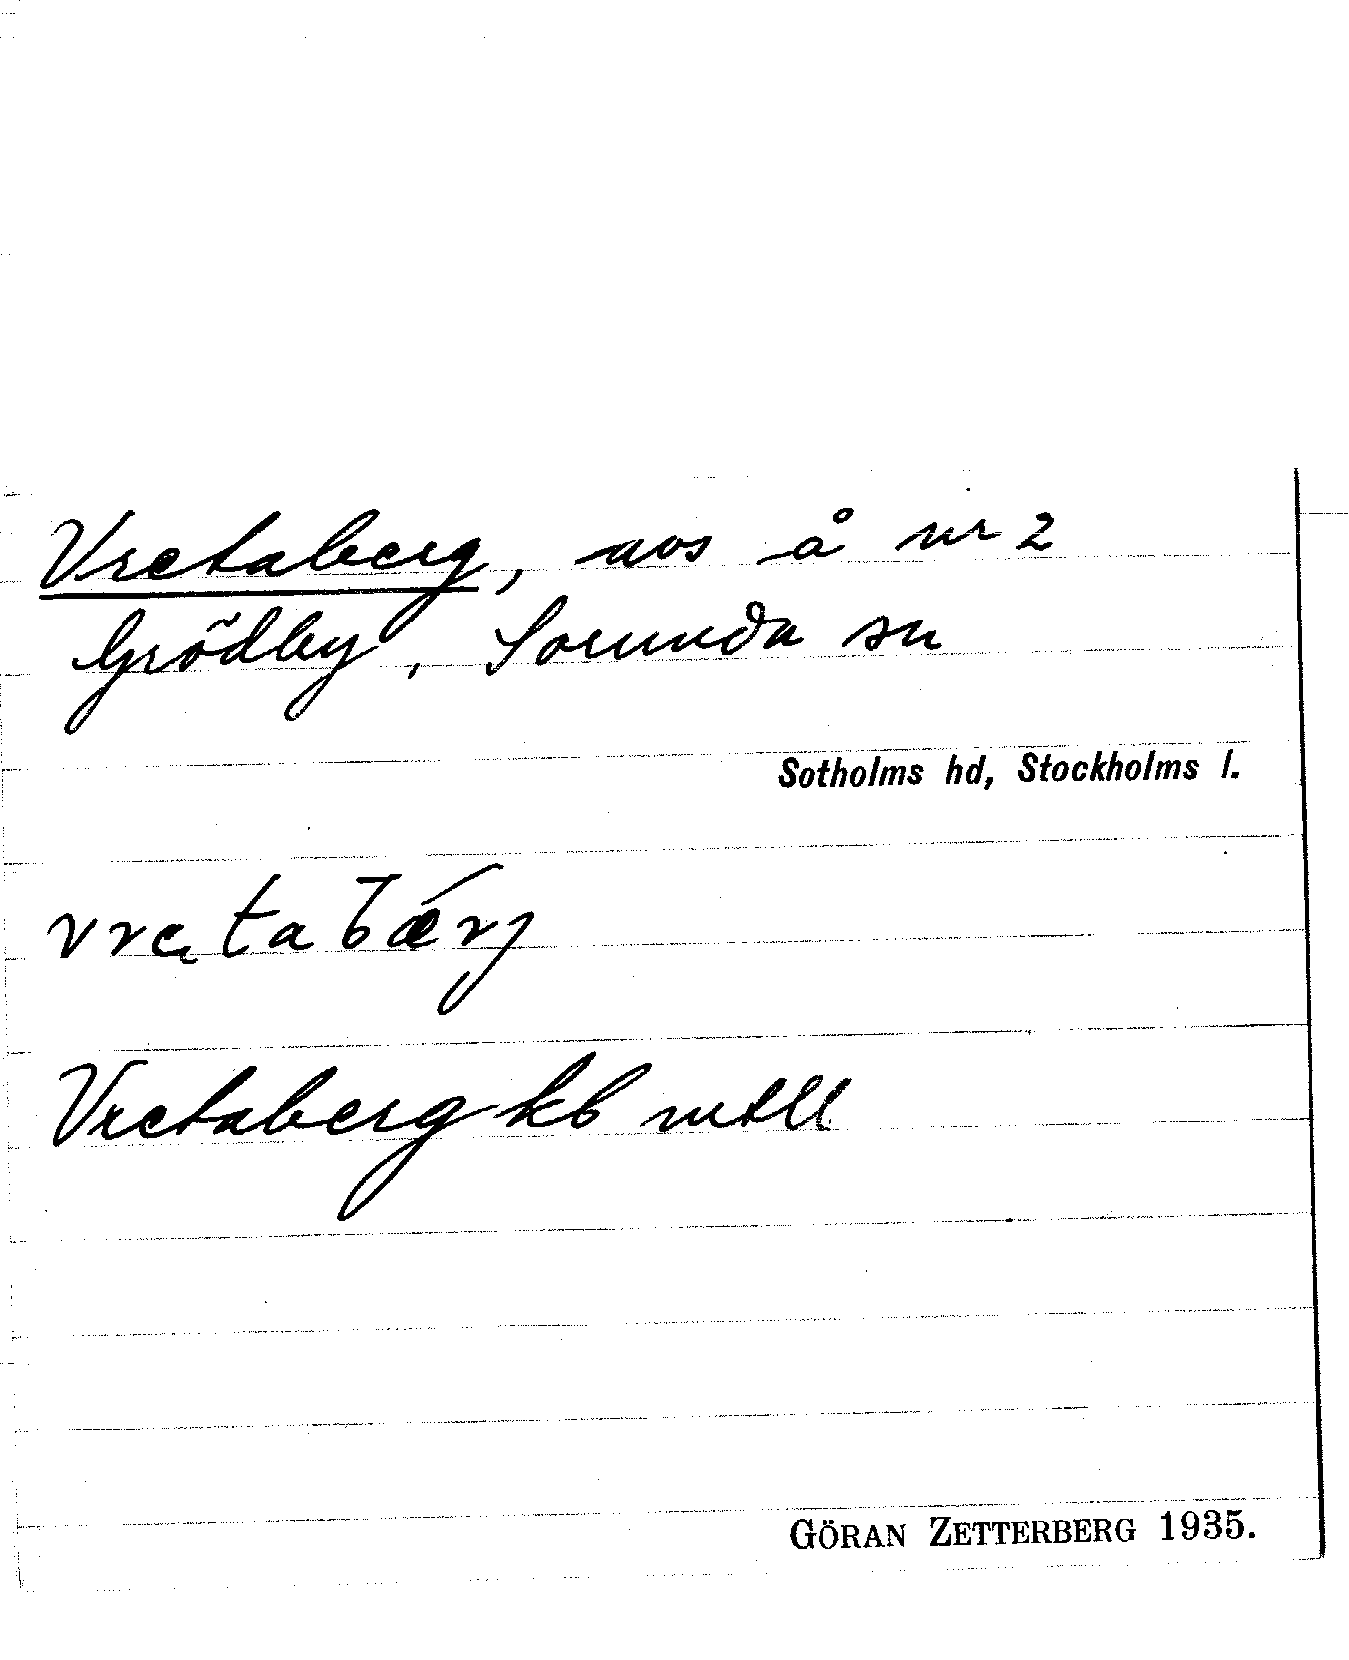 Vretaberg, avs å nr 2
Grödby, Sorunda sn
Sotholms hd, Stockholms l.
vretabærj
Vretaberg kb mtll
GÖRAN ZETTERBERG 1935.